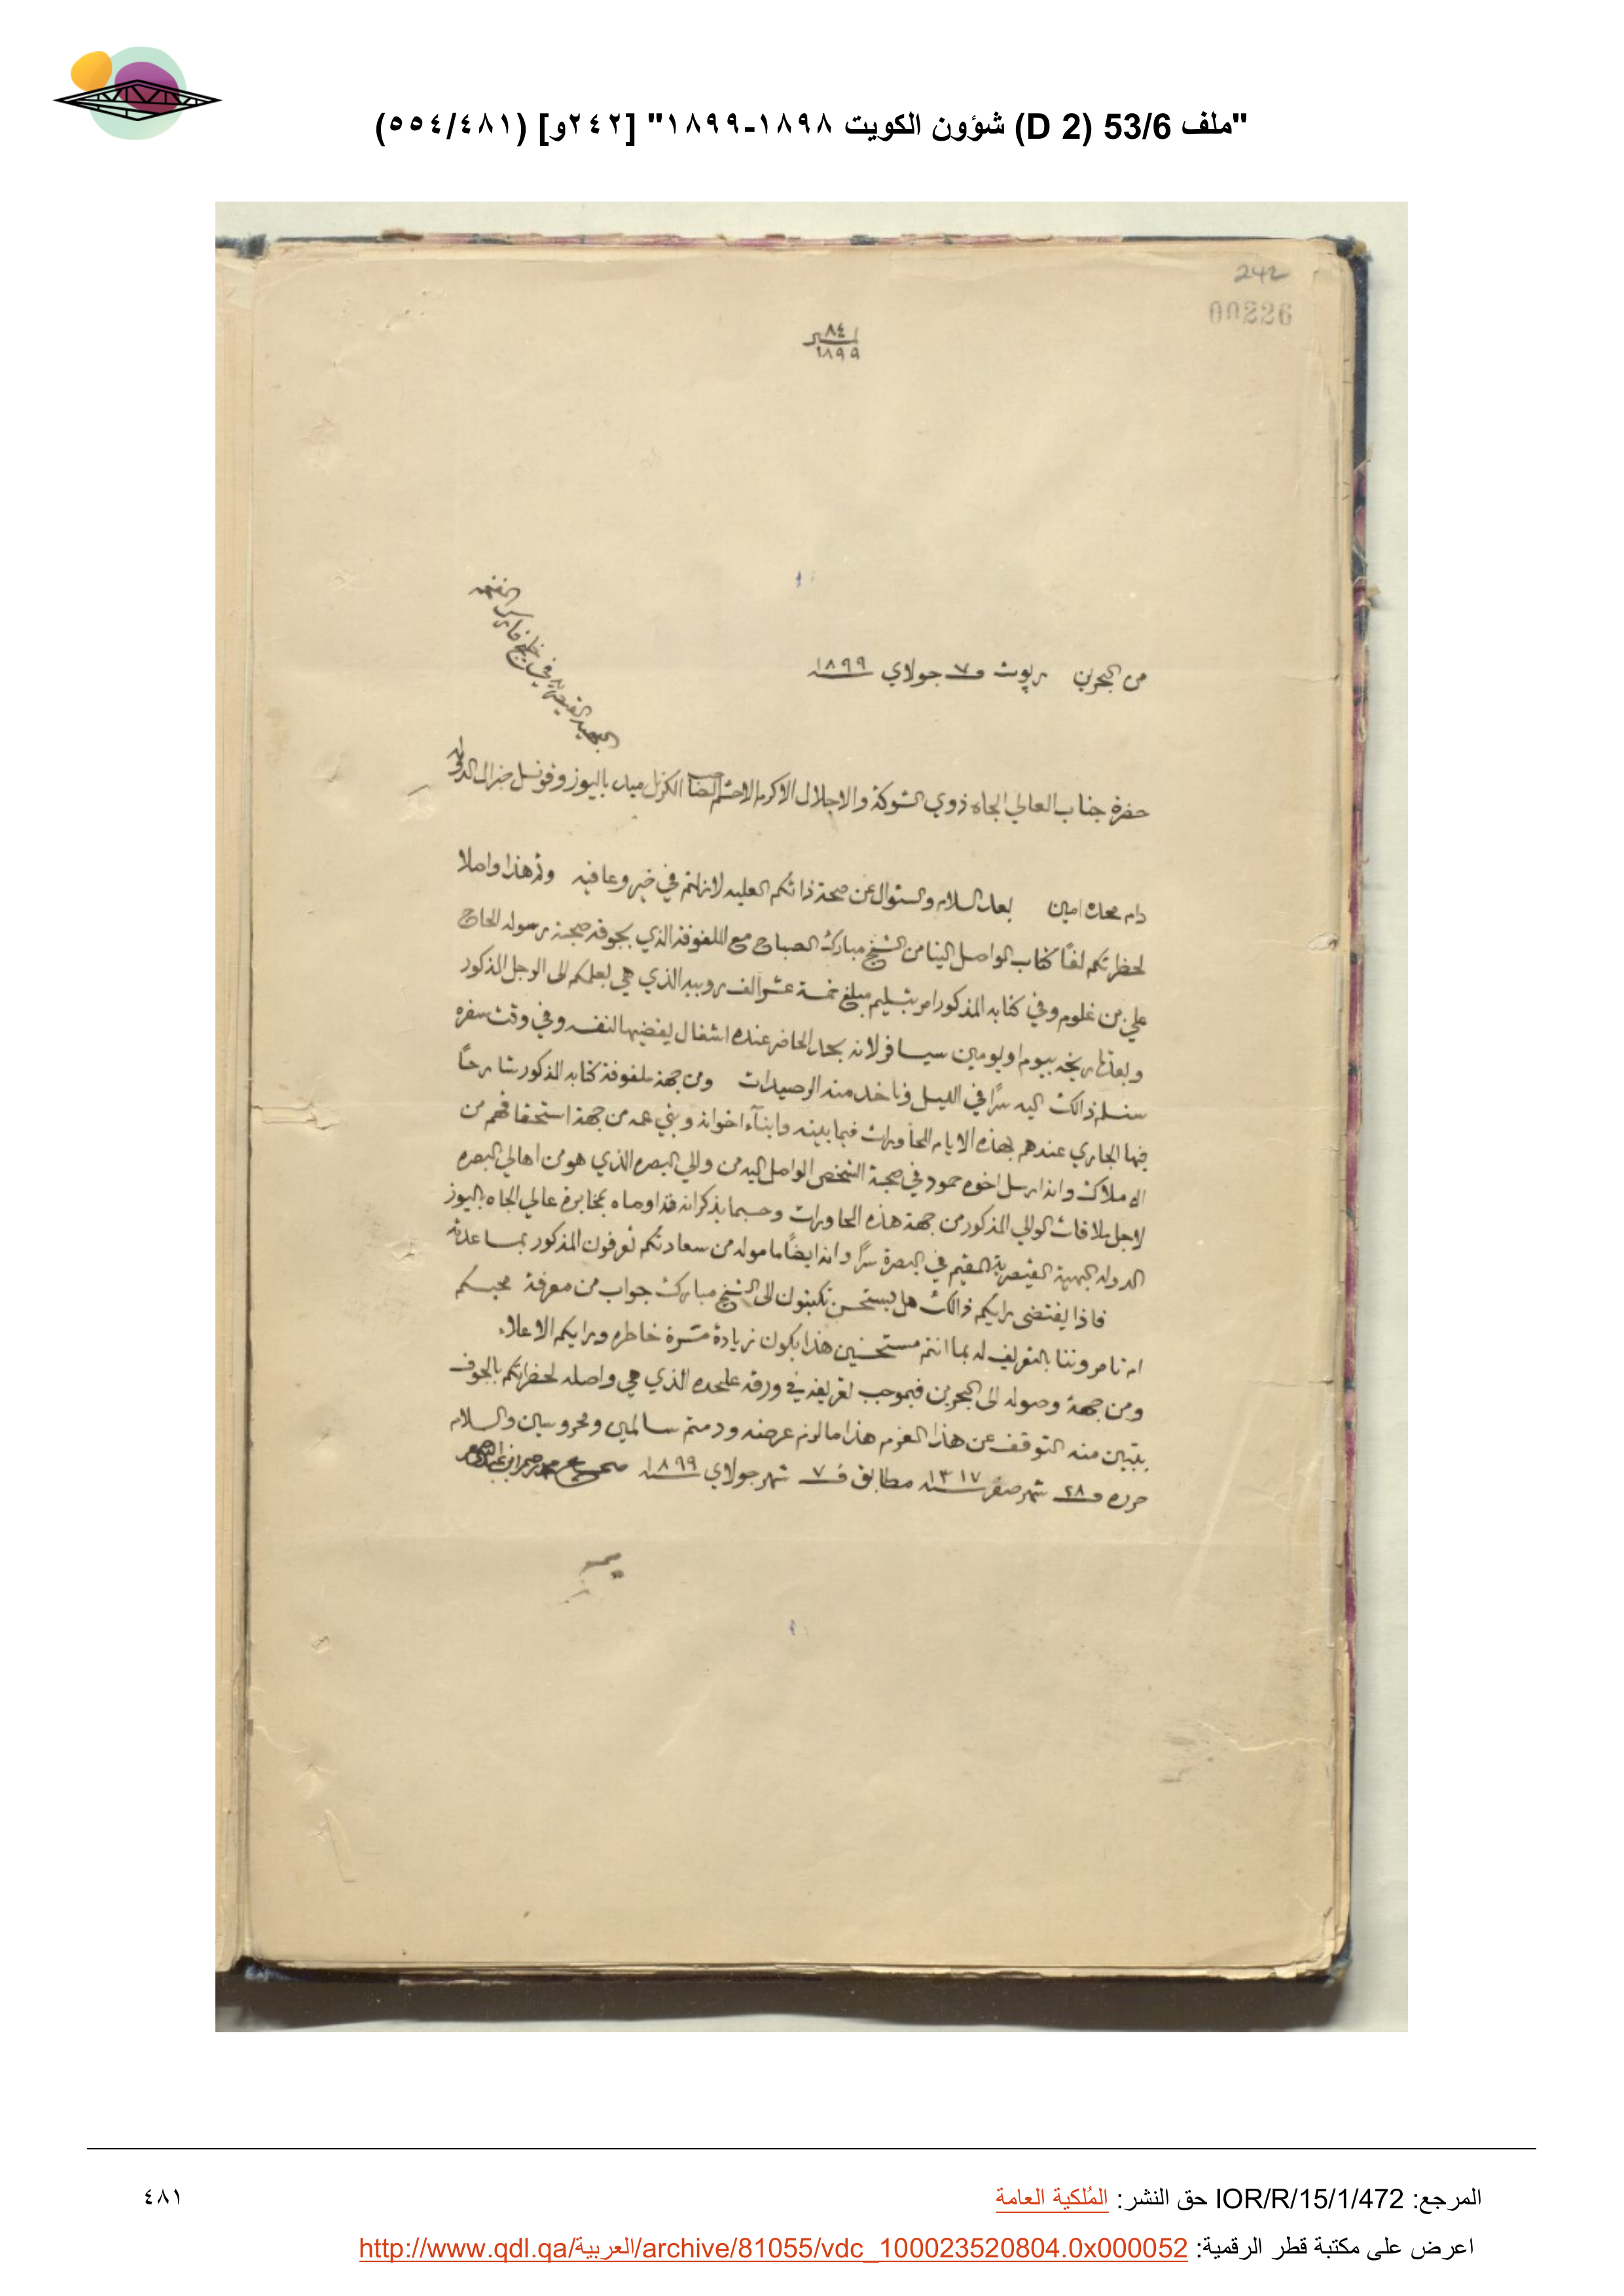 "ملف 53/6 (D 2) شؤون الكويت ١٨٩٨-١٨٩٩" [٢٤٢و] (٥٥٤/٤٨١)
242
00226
٨٤
١٨٩٩
من البحرين ربوت في ٧ جولاي ١٨٩٩
البهية القيصرية في خليج فارس
حضرة جناب العالي الجاه ذوي الشوكة والاجلال الاكرم الاحشم الكرنل ميد باليوز وقونسل جنرال الدولة
دام محله امين بعد السلام والسئوال عن صحة ذاتكم العليه لازلتم في خير وعافيه وثم هذا واصلا
لحظرتكم لفًا كتاب الواصل الينا من الشيخ مبارك الصباح مع الملفوفة الذي بجوفه صحبة رسوله الحاج
علي بن غلوم وفي كتابه المذكور امر بتسليم مبلغ خمسة عشر الف روبيه الذي هي بعلمكم الى الرجل المذكور
وبعد تاريخه بيوم او يومين سيسافر لانه بحد الحاضر عنده اشغال يقضيها لنفسه وفي وقت سفره
سنسلم ذالك اليه سرًا في الليل وناخد منه الرصيدات ومن جهة ملفوفة كتابه المذكور شارحًا
فيها الجاري عندهم بهذه الايام المحاورات فيما بينه وابنآء اخوانه وبني عمه من جهة استحقاقهم من
الاملاك وانه ارسل اخوه حمود في صحبة الشخص الواصل اليه من والي البصره الذي هو من اهالي البصره
لاجل ملاقات الوالي المذكور من جهة هذه المحاورات وحسبما يذكر انه قد اوصاه بمخابرة عالي الجاه باليوز
الدولة البهية القيصرية المقيم في البصرة سرًا وانه ايضًا ماموله من سعادتكم تعرفون المذكور بمساعدته
فاذا يقتضى برايكم ذالك هل يستحسن تكتبون الى الشيخ مبارك جواب من معرفة محبكم
ام تامروننا بالتعريف له بما انتم مستحسنين هذا يكون زيادة مسرة خاطره وبرايكم الاعلاء
ومن جهة وصوله الى البحرين فبموجب تعريفه في ورقة علحده الذي هي واصله لحضراتكم بالجوف
يتبين منه التوقف عن هذا العزم هذا ما لزم عرضه ودمتم سالمين ومحروسين والسلام
حرره في ٢٨ شهر صفر سنة ١٣١٧ مطابق في ٧ شهر جولاي سنة ١٨٩٩
المرجع: IOR/R/15/1/472 حق النشر: المُلكية العامة
٤٨١
اعرض على مكتبة قطر الرقمية: http://www.qdl.qa/العربية/archive/81055/vdc_100023520804.0x000052